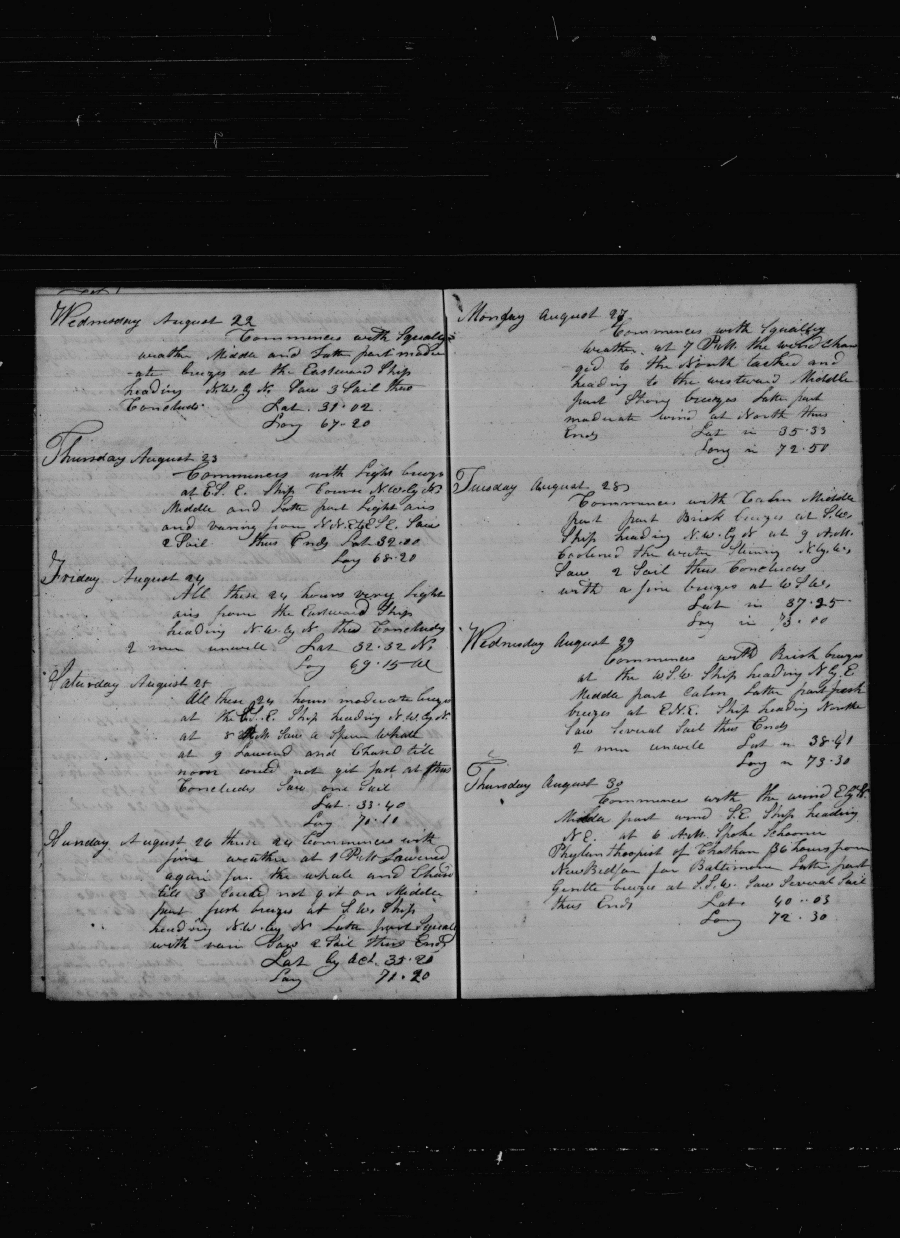 Wednesday August 22
Commences with Squally
weather Middle and Latter part moder
-ate breezes at the Eastward Ship
heading N.W. by N. Saw 3 Sail thus
Concludes. Lat 31.02
Long 67-20
Thursday August 23
Commences with Light breeze
at E.S.E. Ship Course N.W. by N
Middle and Latter part Light airs
and varing from N.N.E. to E.S.E. Saw
2 Sail thus Ends Lat 32.00
Long 68.20
Friday August 24
All these 24 hours very Light
airs from the Eastward Ship
heading N.W. by N. thus Concluds
2 men unwell Lat 32.52 N.
Long 69.15
Saturday August 25
All these 24 hours moderate breezes
at the E.S.E. Ship heading N.W. by N.
at 8 A.M. Saw a Sperm Whale
at 9 Lowered and Chased till
noon could not git fast at thus
Concludes Saw one Sail
Lat. 33.40
Long 70.10
Sunday August 26 these 24 Commences with
fine weather at 1 P.M. Lowered
again for the whale and Chased
till 3 could not git on Middle
part fresh breezes at S.W. Ship
heading N.W. by N Latter part Squalls
with rain Saw 2 Sail thus Ends
Lat by Act. 35.20
Long 71.20
Monday August 27
Commences with Squalley
weather. at 7 P.M. the wind Chan
-ged to the North tacked and
heading to the westward Middle
part Strong breezes Latter part
moderate wind at North thus
Ends Lat in 35.33
Long in 72.50
Tuesday August 28
Commences with Calm Middle
part part Brisk breezes at S.W.
Ship heading N.W. by N at 9 A.M.
Coolered the water Stering N. by W.
Saw 2 Sail thus Concludes
with a fine breezes at W.S.W.
Lat in 37.25
Long in 73.00
Wednesday August 29
Commences with Brisk breezes
at the W.S.W Ship heading N.E
Middle part Calm Latter part fresh
breezes at E.N.E. Ship heading North
Saw Several Sail thus Ends
2 men unwell Lat in 38.41
Long in 73.30
Thursday August 30
Commences with the wind E by N.
Middle part wind S.E. Ship heading
N E. at 6 A.M. Spoke Schooner
Phylanthropist of Chatham 36 hours from
New Bedford for Baltimore Latter part
Gentle breezes at S.S.W. Saw Several Sail
thus Ends Lat. 40.03
Long 72.30.